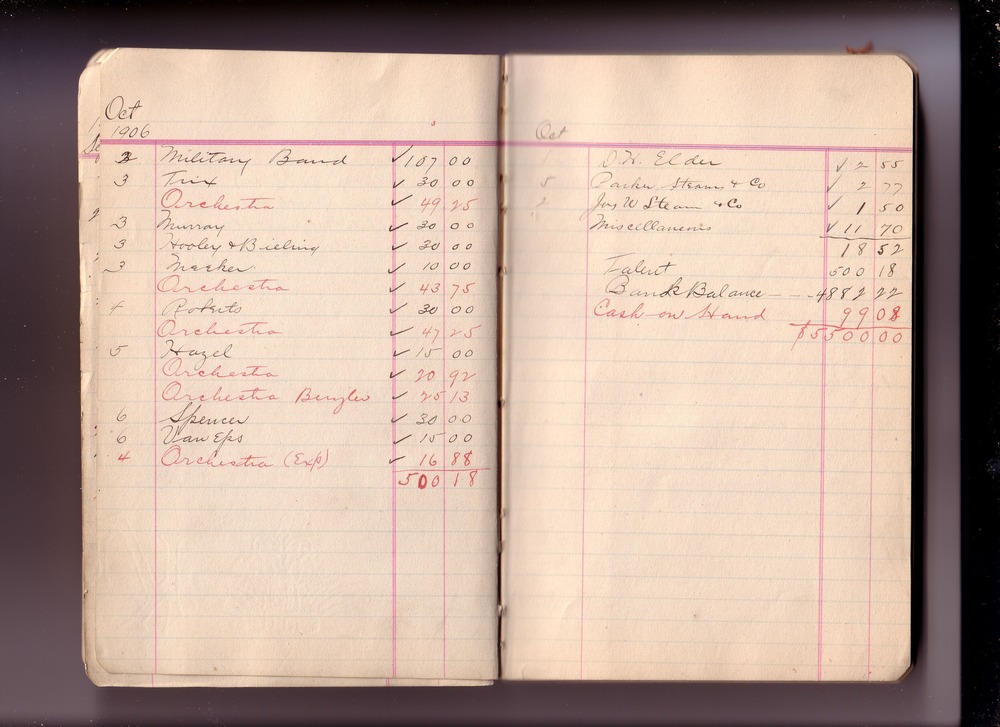 Oct
1906
2 Military Band ✓ 107 00
3 Trix ✓ 30 00
Orchestra ✓ 49 25
3 Murray ✓ 30 00
3 Hooley & Bieling ✓ 30 00
3 Meeker ✓ 10 00
Orchestra ✓ 43 75
4 Roberts ✓ 30 00
Orchestra ✓ 47 25
5 Hazel ✓ 15 00
Orchestra ✓ 20 92
Orchestra Benzler ✓ 25 13
6 Spencer ✓ 30 00
6 Van Eps ✓ 15 00
4 Orchestra (Exp) ✓ 16 88
500 18
Oct
D.W. Elder ✓ 2 55
5 Parker Stearns & Co ✓ 2 77
Jos W Stearn & Co ✓ 1 50
Miscellaneous ✓ 11 70
18 52
Talent 500 18
Bank Balance - - - 4882 22
Cash on Hand 99 08
$5500 00